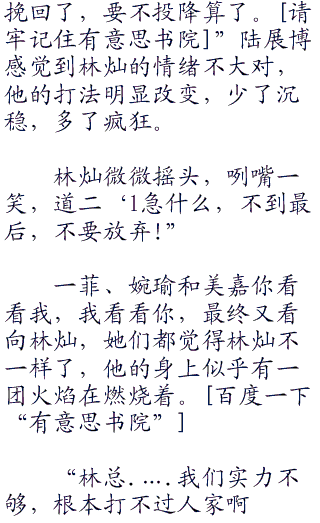 挽回了，要不投降算了。[请
牢记住有意思书院]”陆展博
感觉到林灿的情绪不大对，
他的打法明显改变，少了沉
稳，多了疯狂。
林灿微微摇头，咧嘴一
笑，道二‘1急什么，不到最
后，不要放弃!”
一菲、婉瑜和美嘉你看
看我，我看看你，最终又看
向林灿，她们都觉得林灿不
一样了，他的身上似乎有一
团火焰在燃烧着。[百度一下
“有意思书院”]
“林总.….我们实力不
够，根本打不过人家啊